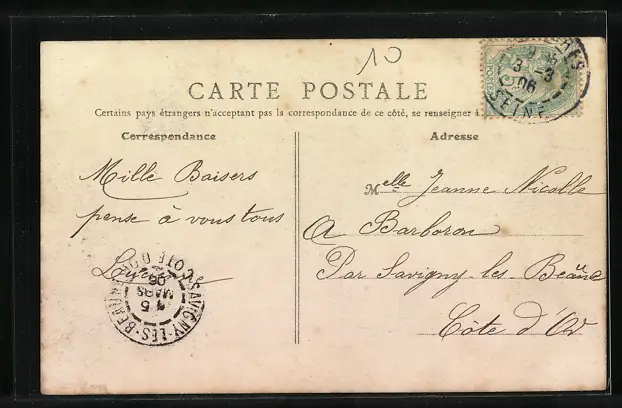 10
CARTE POSTALE
Certains pays étrangers n'acceptant pas la correspondance de ce côté, se renseigner à
Correspondance
Adresse
Mille Baisers
pense à vous tous
Melle Jeanne Nicolle
A Barboron
Par Savigny les Beaune
Côte d'Or
3 -3
06
SEINE
SAVIGNY-LES-BEAUNE
MARS
06